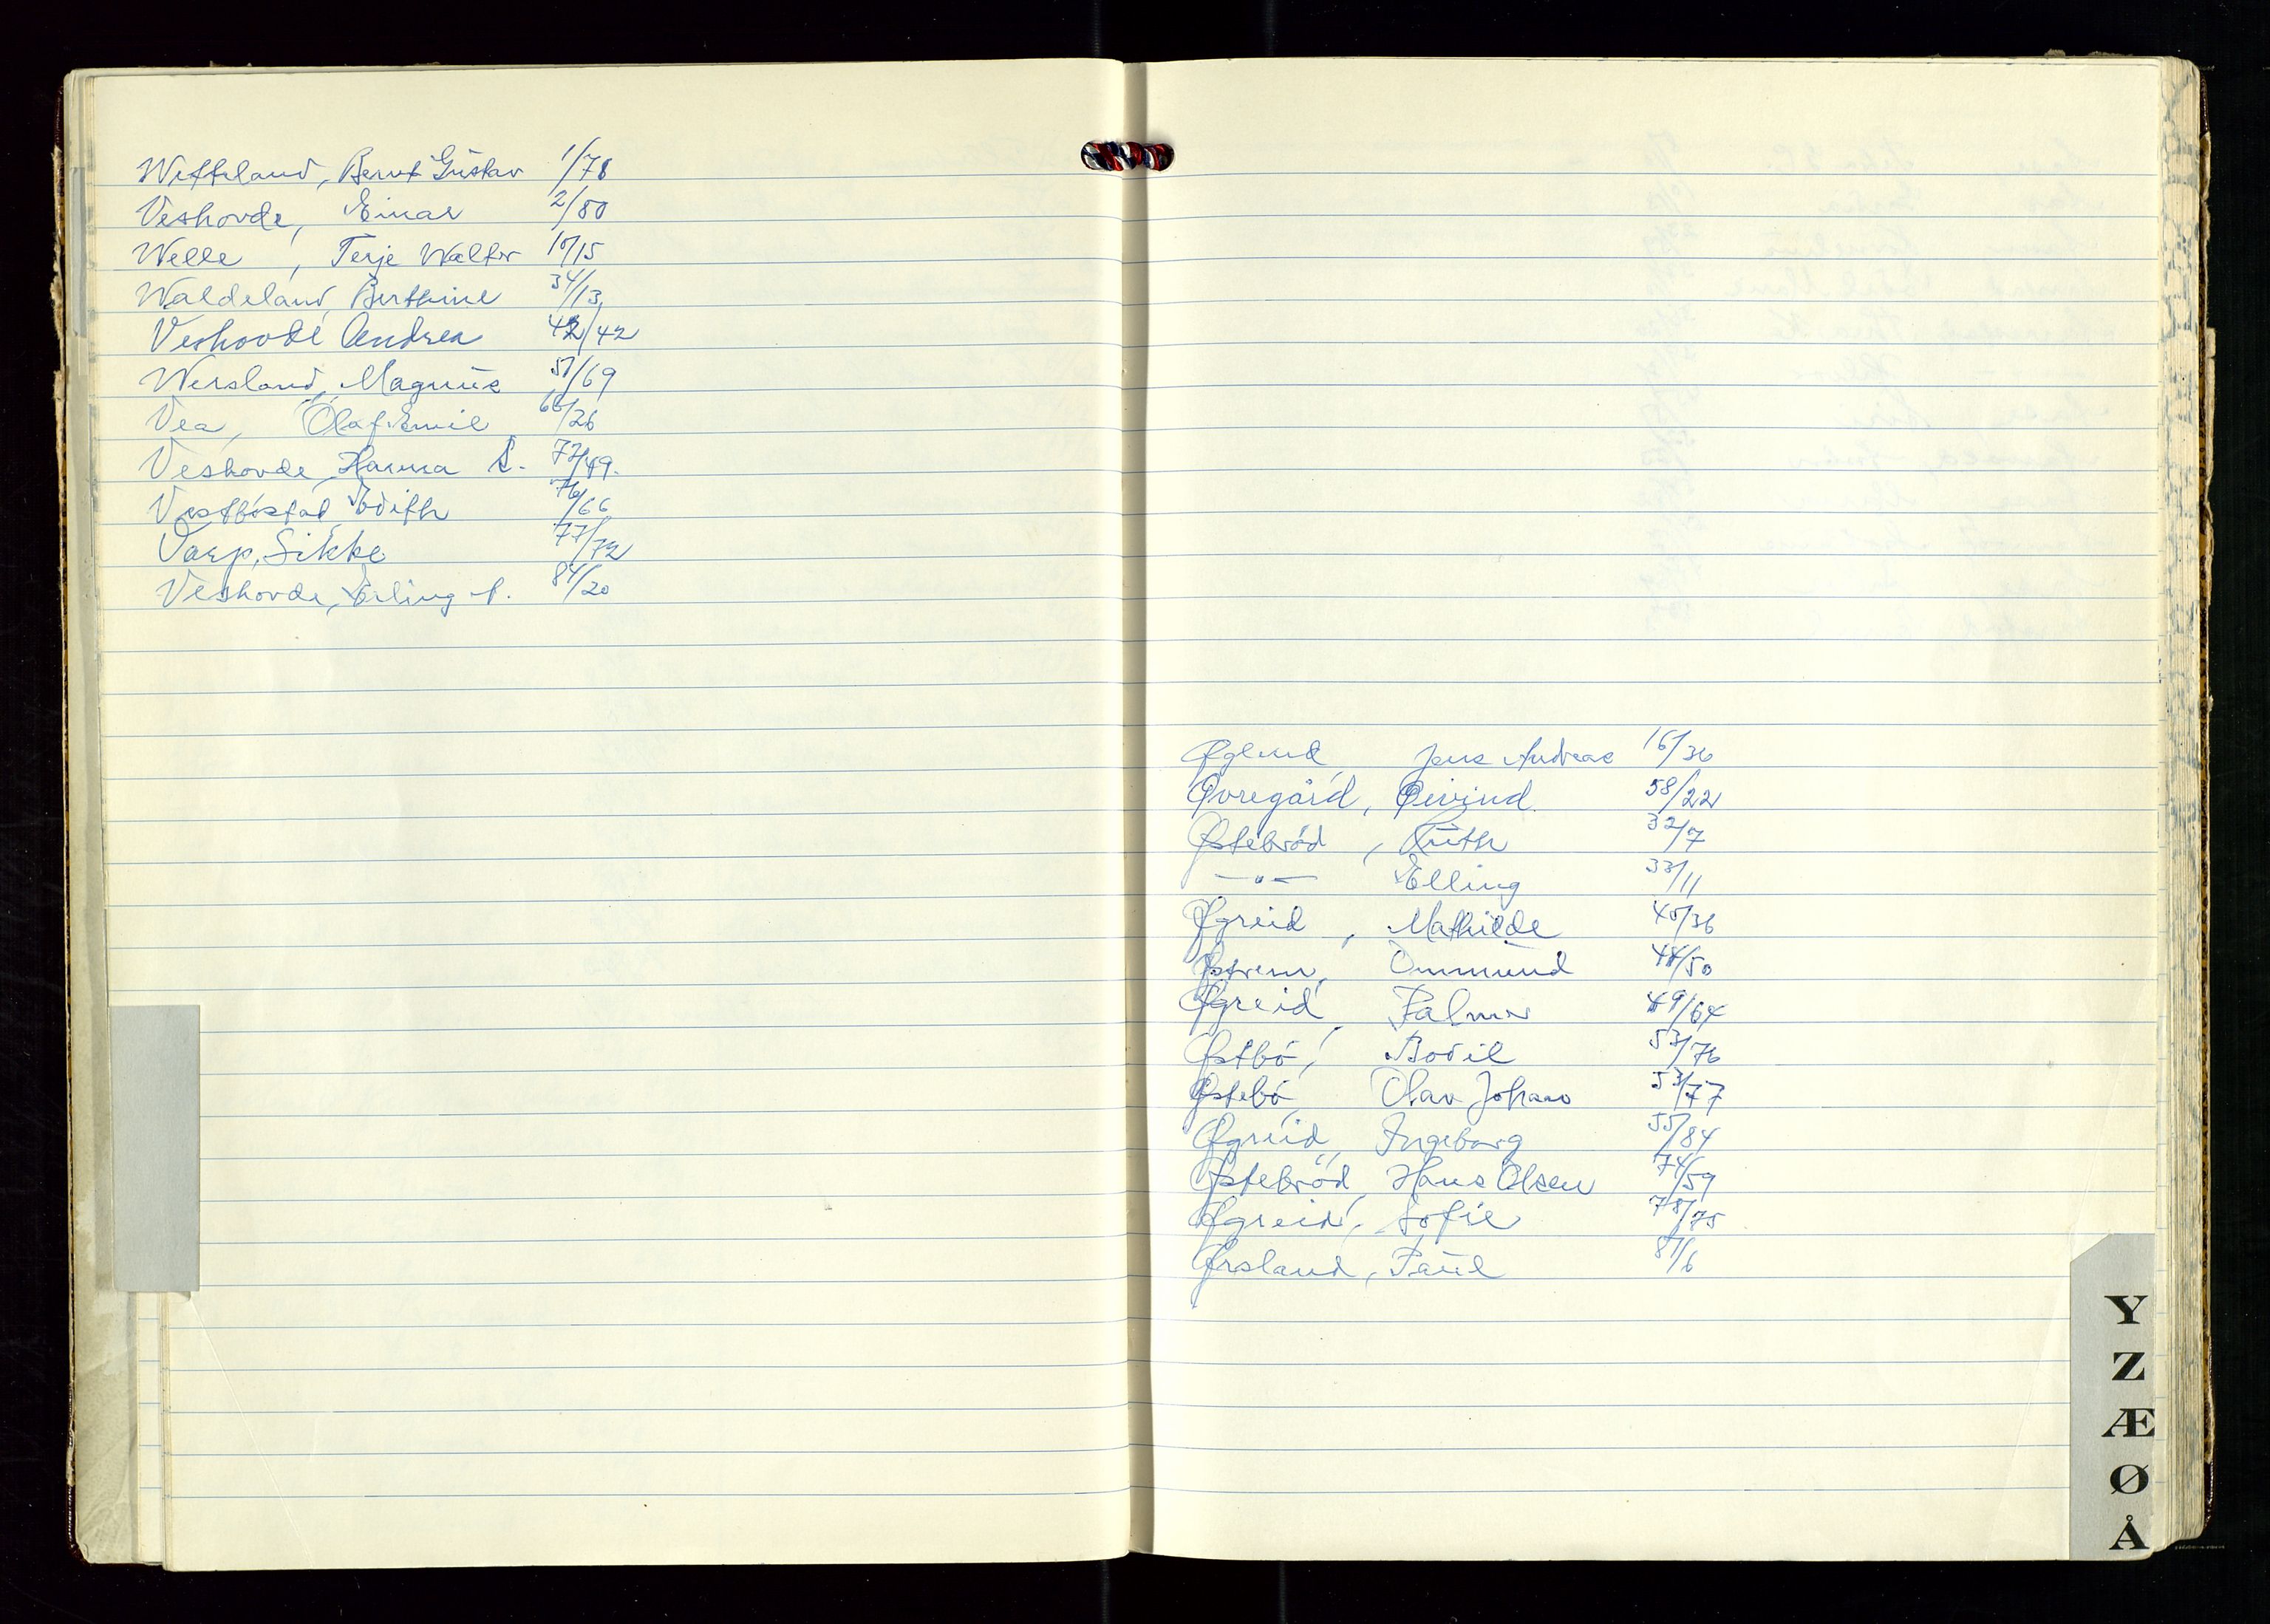 Wetteland, Bernt Gustav 1/78
Veshovde, Einar 2/80
Welle, Terje Walter 10/15
Waldeland, Berthine 34/13
Veshovde Andrea 42/42
Wersland, Magnus 51/69
Vea, Olaf Emil 66/26
Veshovde, Hanna S. 72/49.
Vestbøstad, Edith 76/66
Varp, Sikke 77/72
Veshovde, Erling 84/20
Øglend, Jens Andreas 16/36
Øvregård, Øeivind. 58/22
Østebröd, Ruth 32/7
—"— Elling 33/11
Øgreid, Mathilde 40/36
Østrem, Ommund 48/50
Øgreid, Palmer 49/64
Østbö, Bodil 53/76
Østebö, Olav Johan 53/77
Øgreid, Ingeborg 55/84
Østebröd, Hans Olsen 74/59
Øgreid, Sofie 78/75
Ørsland, Paul 81/6
Y
Z
Æ
Ø
Å